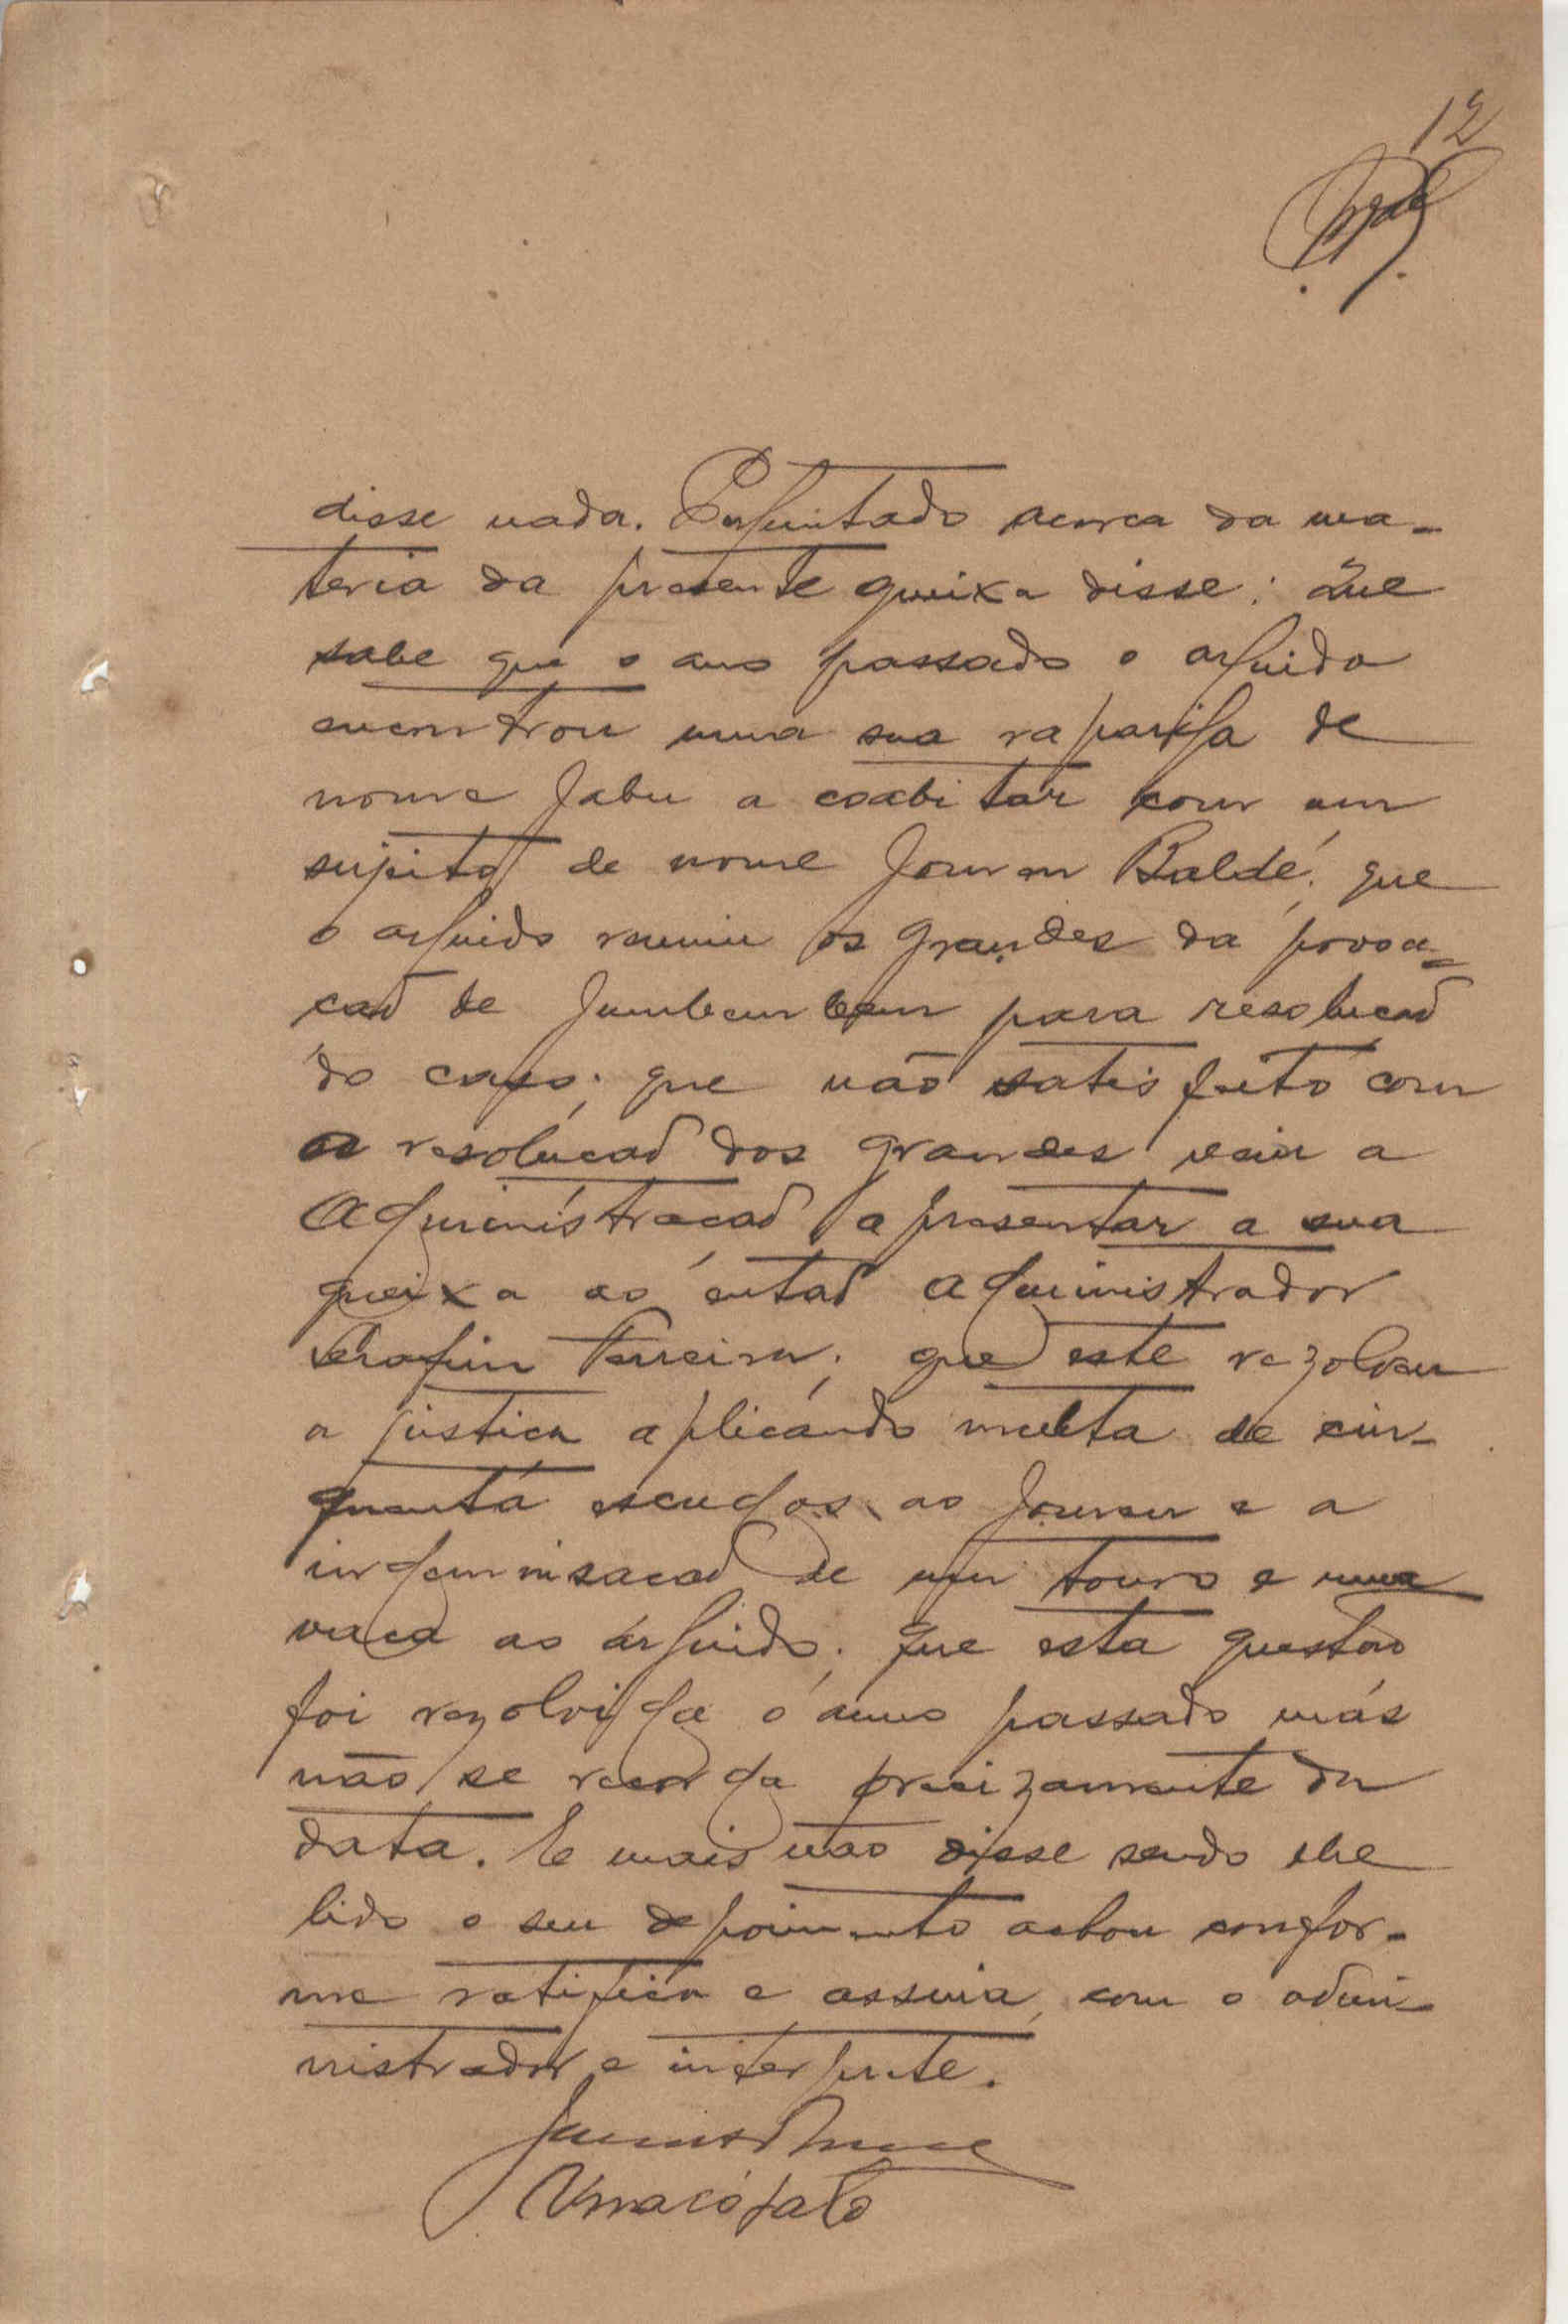 12
disse nada. Perguntado acerca da ma-
teria da presente queixa disse: Que
sabe que o ano passado o arguido
encontrou uma sua rapariga de
nome Jabu a coabitar com um
sujeito de nome Baldé; que
o arguido reuniu os grandes da povoa=
cão de Jumbembem para resolucão
do caso; que não satisfeito com
a resolucão dos grandes veiu a
Administracão apresentar a sua
queixa ao então Administrador
Serafim Ferreira; que este rezolveu
a justica aplicando multa de cin-
quenta escudos ao e a
indemnisacão de um touro e uma
vaca ao arguido; que esta questão
foi rezolvida o anno passado más
não se recorda precizamente da
data. E mais não disse sendo lhe
lido o seu depoimento achou confor-
me ratifica e assina, com o admi-
nistrador e interprete.